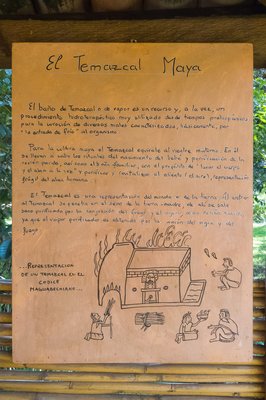 El Temazcal Maya
El baño de Temazcal o de vapor es un recurso y, a la vez, un
procedimiento hidroterapéutico muy utilizado desde tiempos prehispánicos
para la curación de diversos males caracterizados, básicamente, por
"la entrada de frío" al organismo
Para la cultura maya el Temazcal equivale al vientre materno. En él
se llevan a cabo los rituales del nacimiento del bebé y purificación de la
recién parida, así como al baño familiar, con el propósito de "lavar el cuerpo
y el alma a la vez" y purificar y revitalizar el aliento (el aire), representación
frágil del alma humana.
El Temazcal es una representación del mundo de la tierra. Al entrar
al Temazcal se penetra en el seno de la tierra-madre, de ahí se sale
purificado por la conjunción del fuego y el agua
ya que el vapor purificador es obtenido por la unión del agua y el
fuego.
...REPRESENTACIÓN
DE UN TEMAZCAL EN EL
CÓDICE
MAGLIABECHIANO...